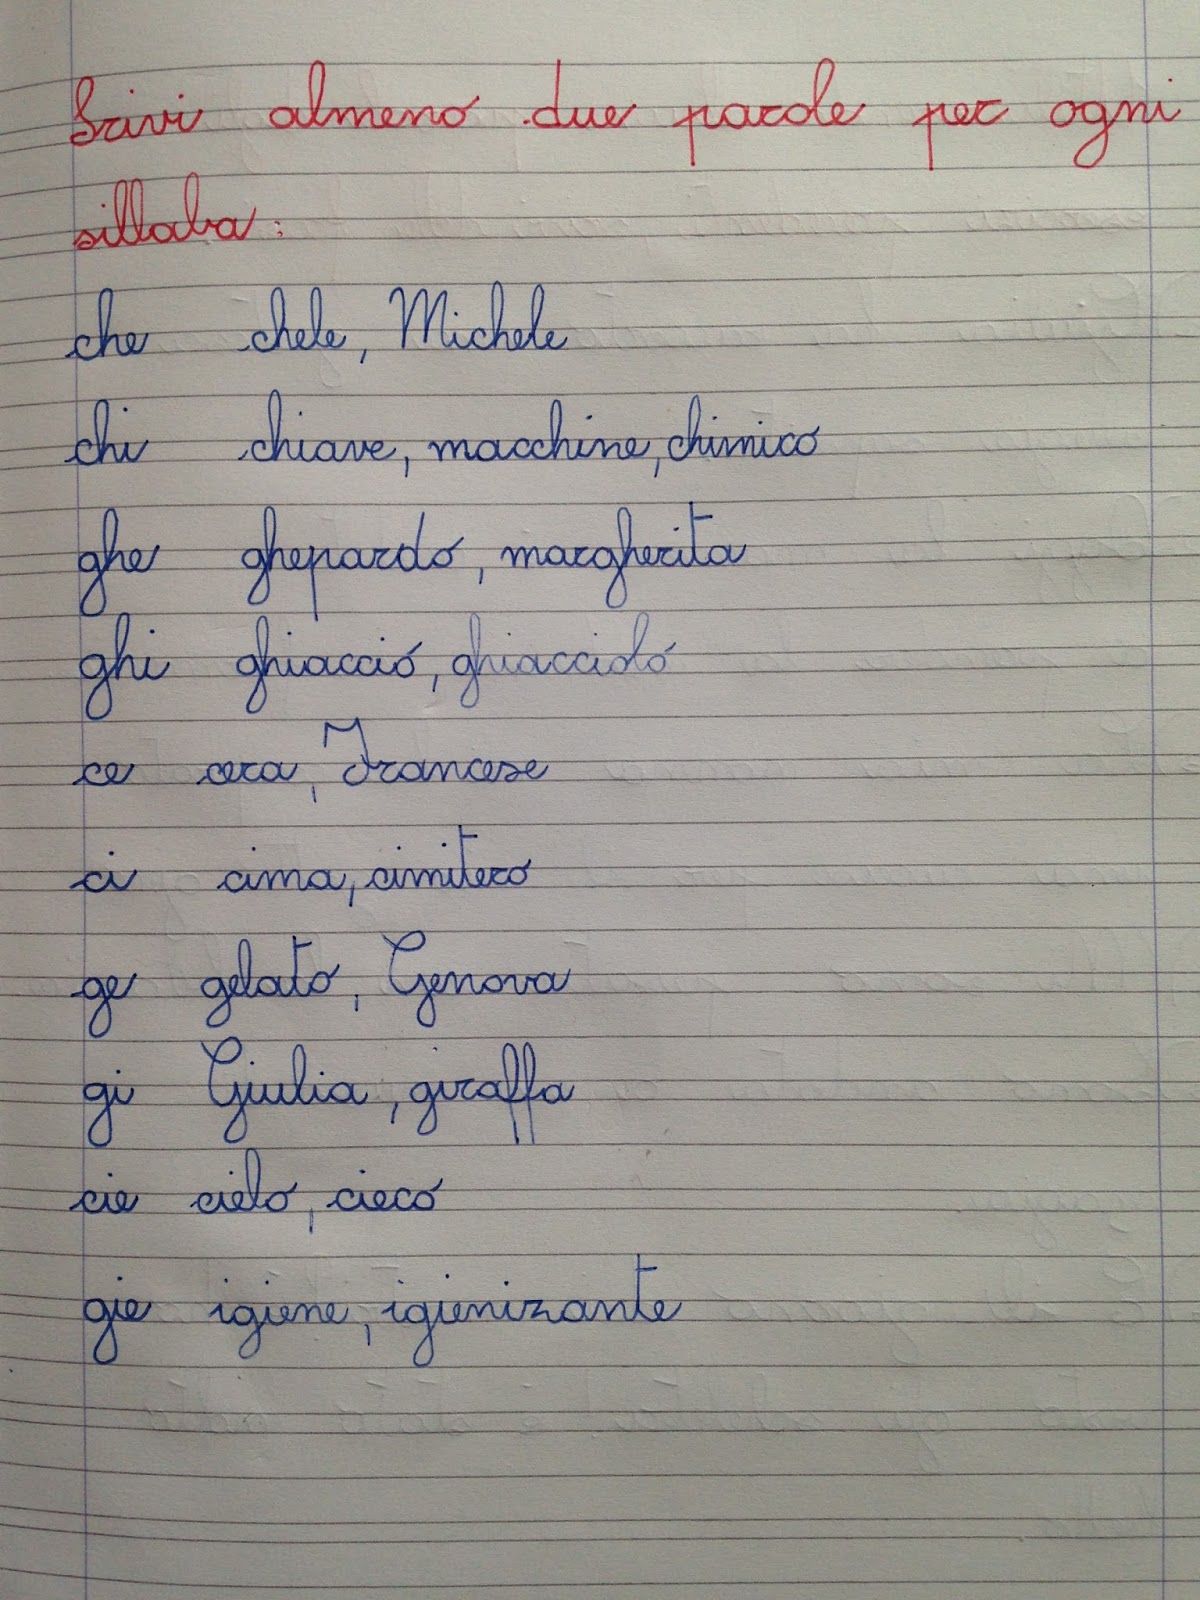 Scrivi almeno due parole per ogni
sillaba:
che chele, Michele
chi chiave, macchine, chimico
ghe ghepardo, margherita
ghi ghiaccio, ghiacciolo
ce cera, Francese
ci cima, cimitero
ge gelato, Genova
gi Giulia, giraffa
cie cielo, cieco
gie igiene, igienizzante